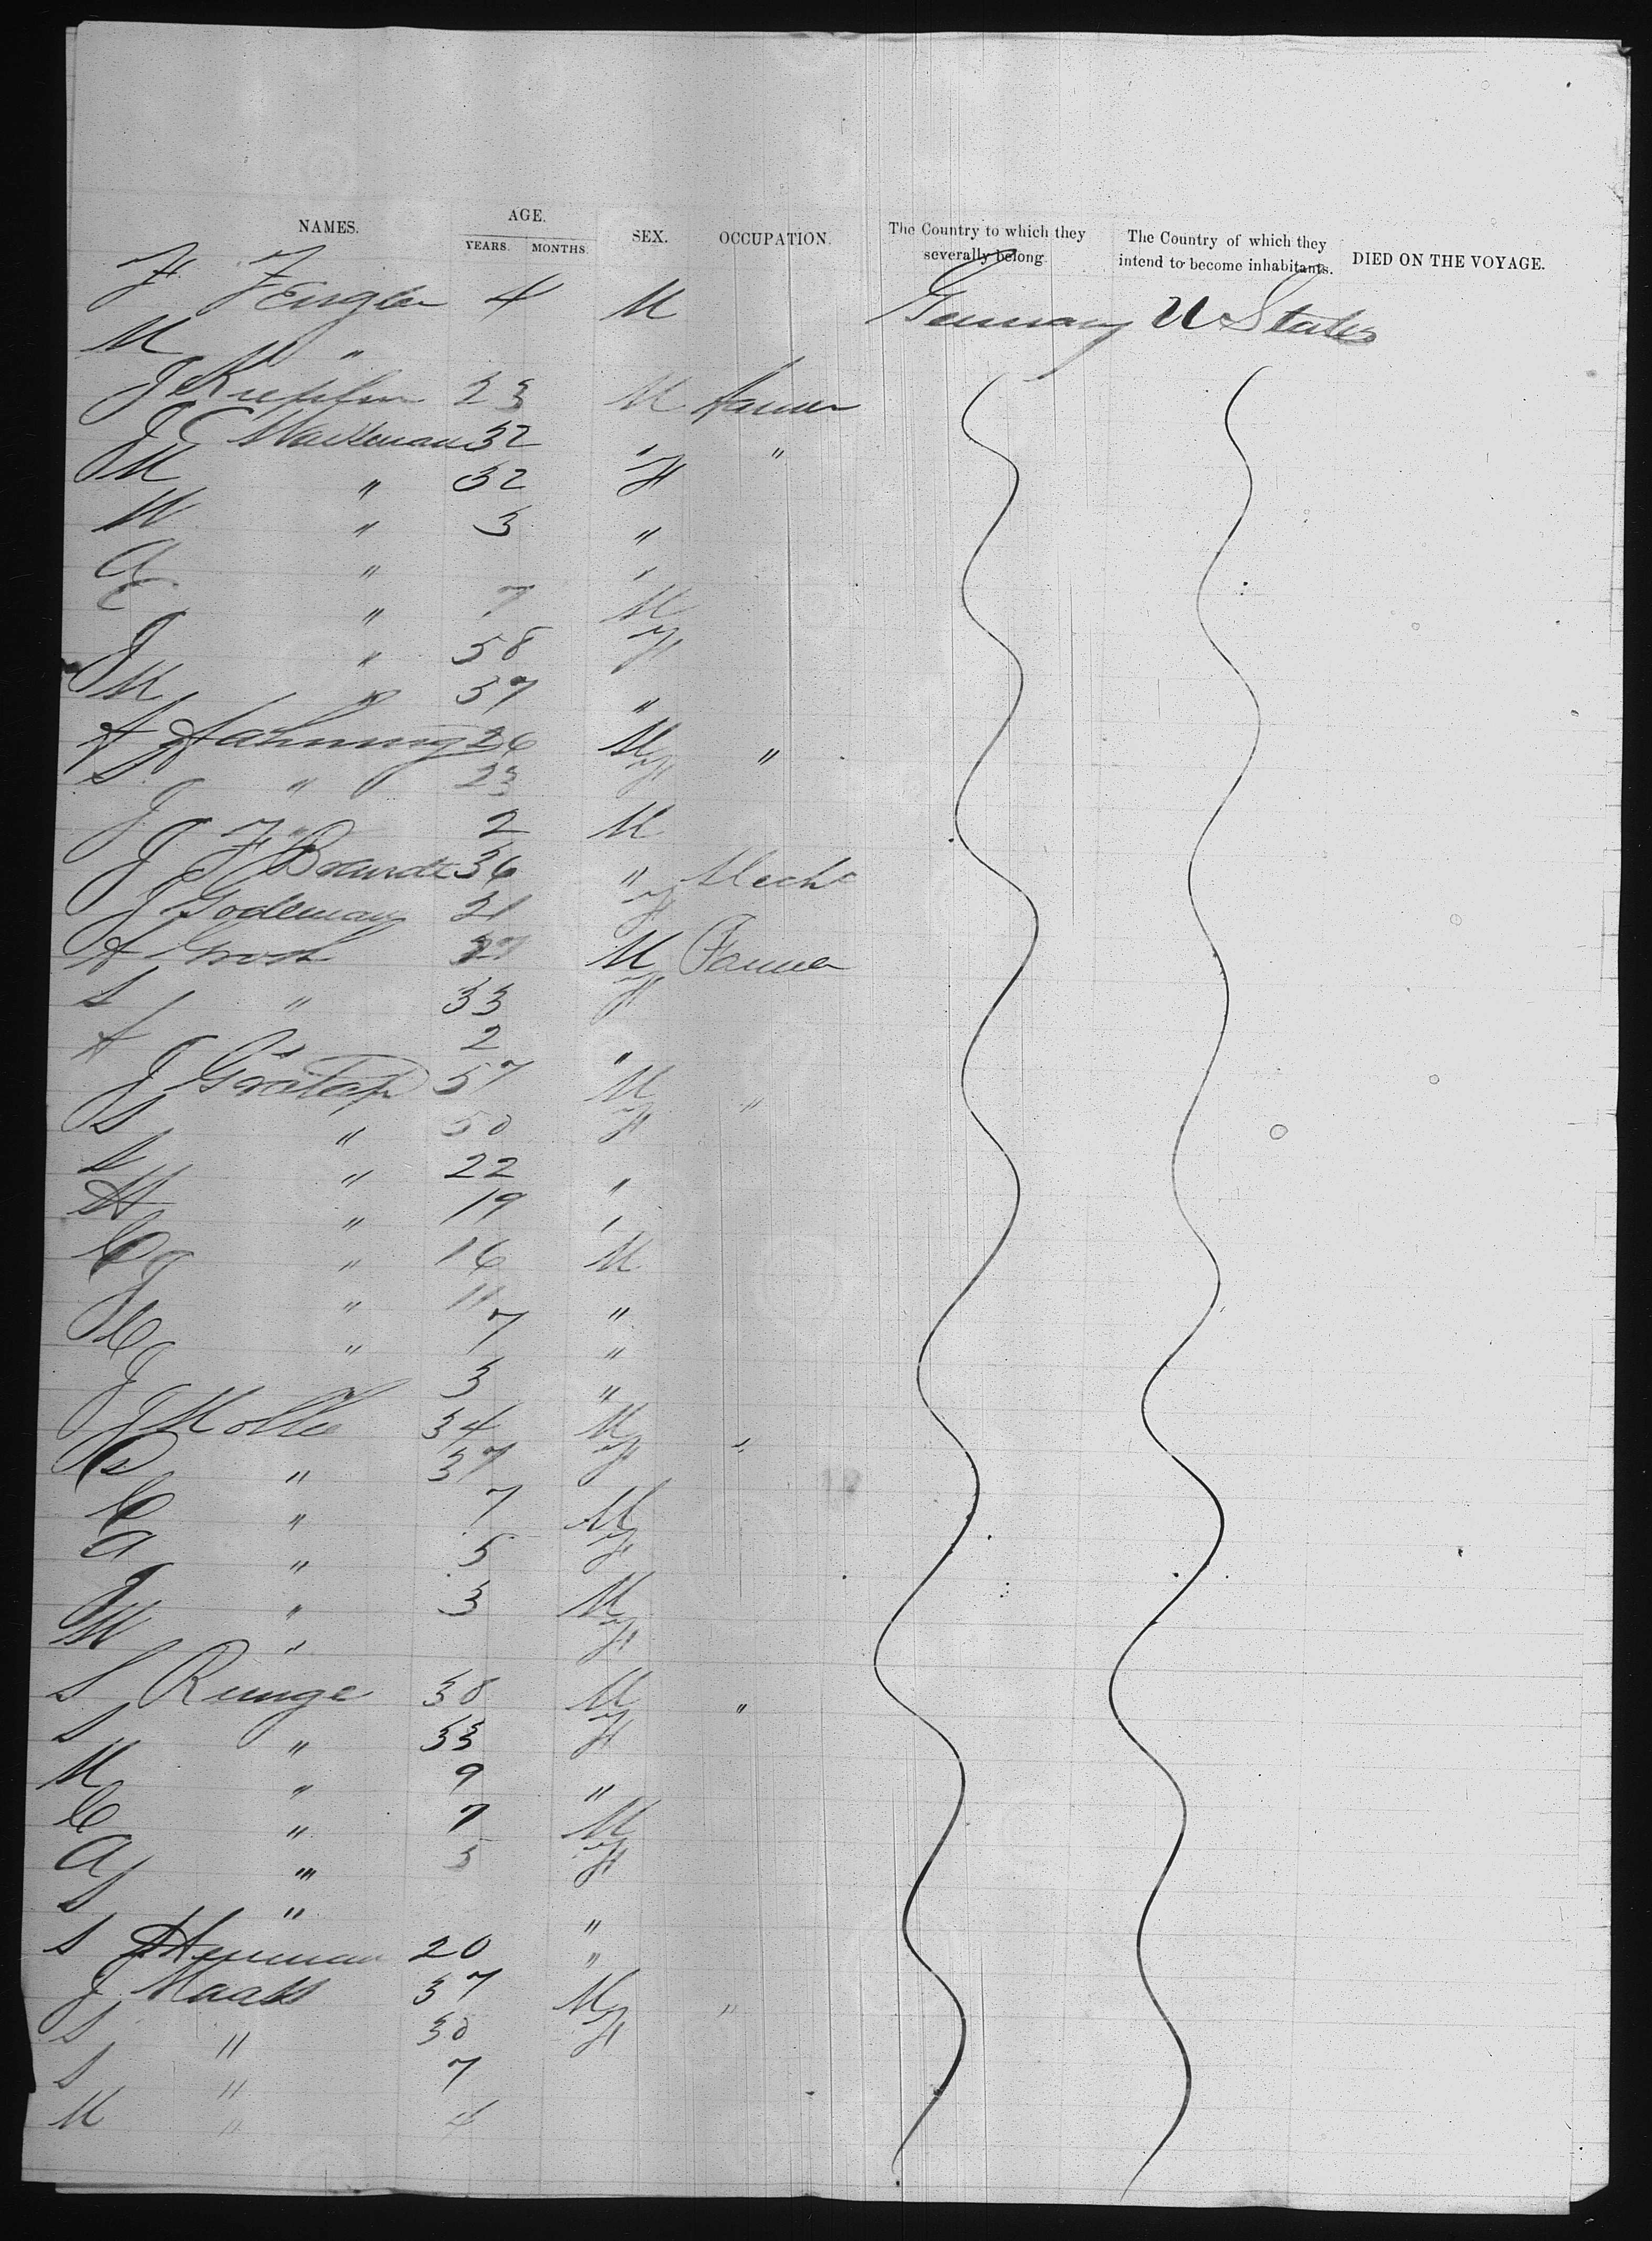 NAMES. AGE. SEX. OCCUPATION. The Country to which they severally belong. The Country of which they intend to become inhabitants. DIED ON THE VOYAGE.
YEARS. MONTHS.
F 4 M Germany U States
M "
J 23 M Farmer
J C 32 " "
M " 32 F
W " 3 "
A " "
E " 7 M
J " 58 F
M " 57 "
A 26 M "
S " 23 F
J " 2 M
J F Brandt 36 " Mech
J Godeman 21 F
A Grosh M Farmer
S " 33 F
A " 2 "
J 57 M "
S " 50 F
S " 22 "
H " 19 "
C " 16 M
J " 11 "
C " 7 "
J " 3 "
J Moller 34 M "
D " 37 F
C " 7 M
A " 5 F
J " 3 M
W " F
S Runge 38 M "
S " 33 F
M " 9 "
C " 7 M
A " 5 F
S " "
S 20 "
J Maass 37 M "
S " 30 F
S " 7
M " 4